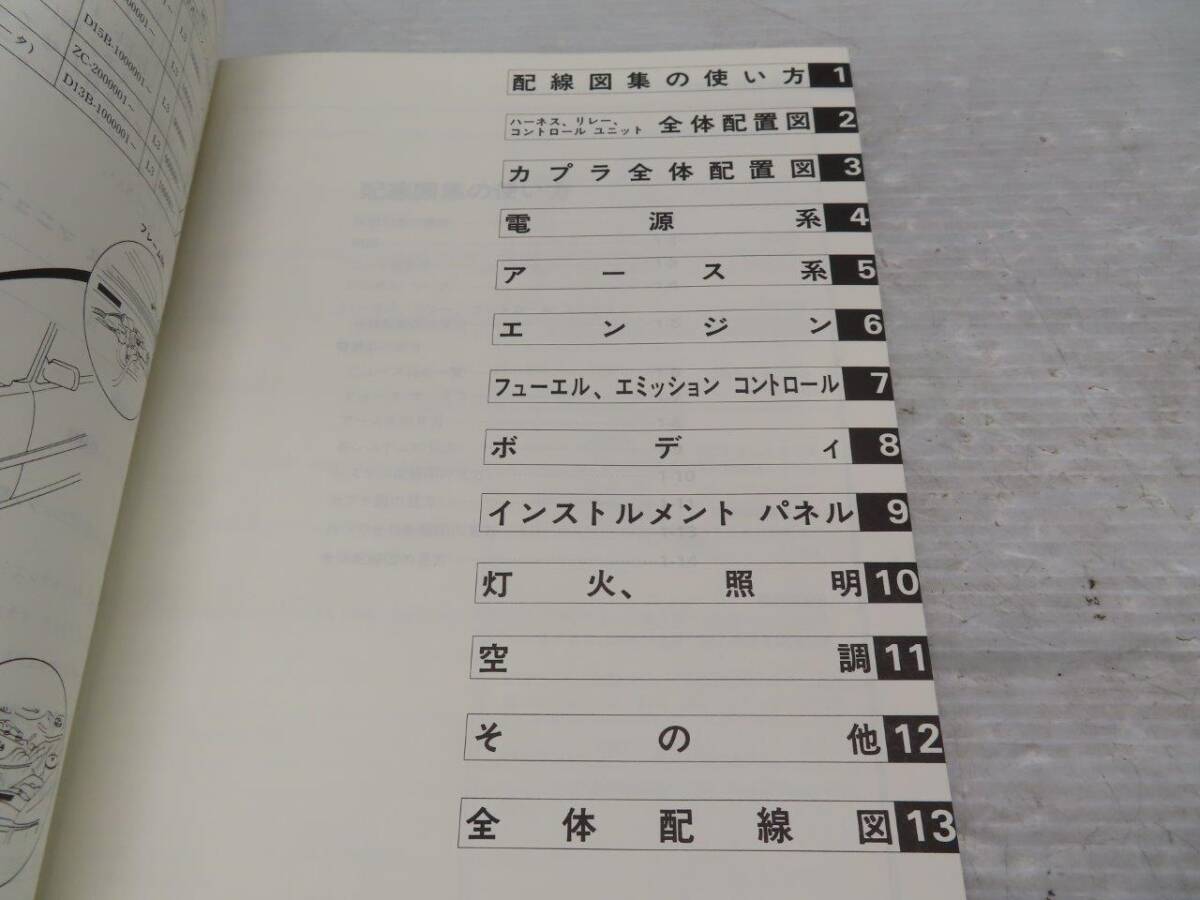 000001~
D15B-1000001~
ZC-2000001~
D13B-1000001~
L3
L3
L3
フレーム
配線図集の使い方 1
ハーネス、リレー、
コントロール ユニット 全体配置図 2
カプラ全体配置図 3
電源系 4
アース系 5
エンジン 6
フューエル、エミッション コントロール 7
ボディ 8
インストルメント パネル 9
灯火、照明 10
空調 11
その他 12
全体配線図 13
配線図集の使い方
1-10